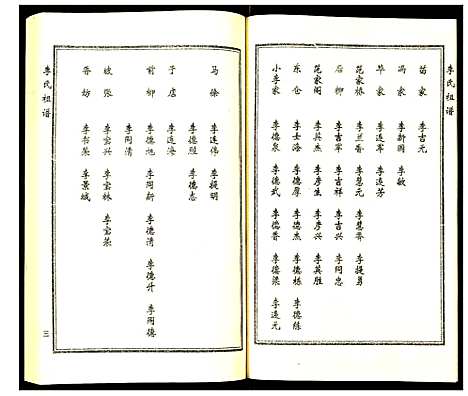 李氏祖谱
苗家 李吉元
冯家 李新国 李敏
毕家 李连军 李连芳
范家桥 李兰香 李慧元 李慧荞 李提勇
后柳 李吉军 李吉祥 李吉兴 李同忠
范家阁 李其杰 李彦生 李彦兴 李其胜
东仓 李士海 李德厚 李德杰 李德栋 李德陈
小李家 李德泉 李德武 李德普 李德梁 李连元
马徐 李连伟 李提明
于店 李连海 李德顺 李德志
前柳 李德旭 李同新 李德清 李德升 李同德
李同清
坡张 李宝兴 李宝林 李宝荣
香坊 李书荣 李景城
李氏祖谱
三